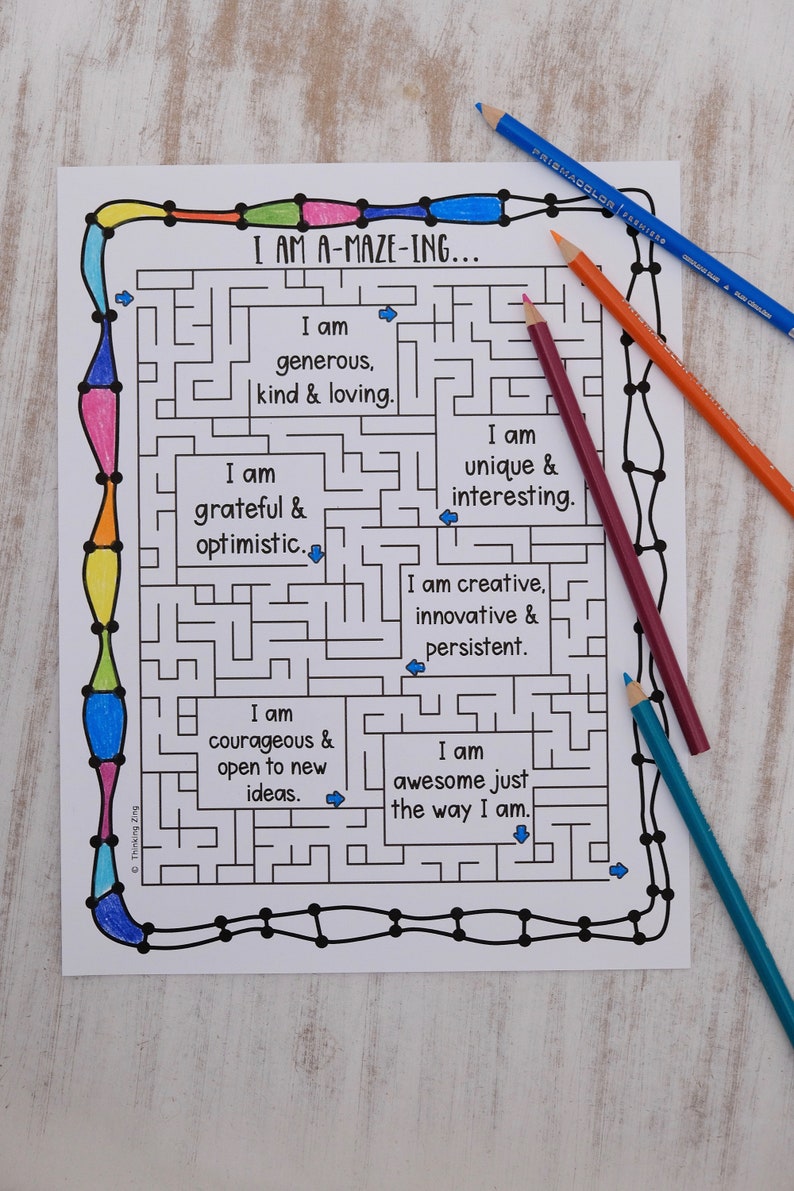 PRISMACOLOR PREMIER®
I AM A-MAZE-ING...
I am
generous,
kind & loving.
I am
unique &
interesting.
I am
grateful &
optimistic.
I am creative,
innovative &
persistent.
I am
courageous &
open to new
ideas.
I am
awesome just
the way I am.
© Thinking Zing